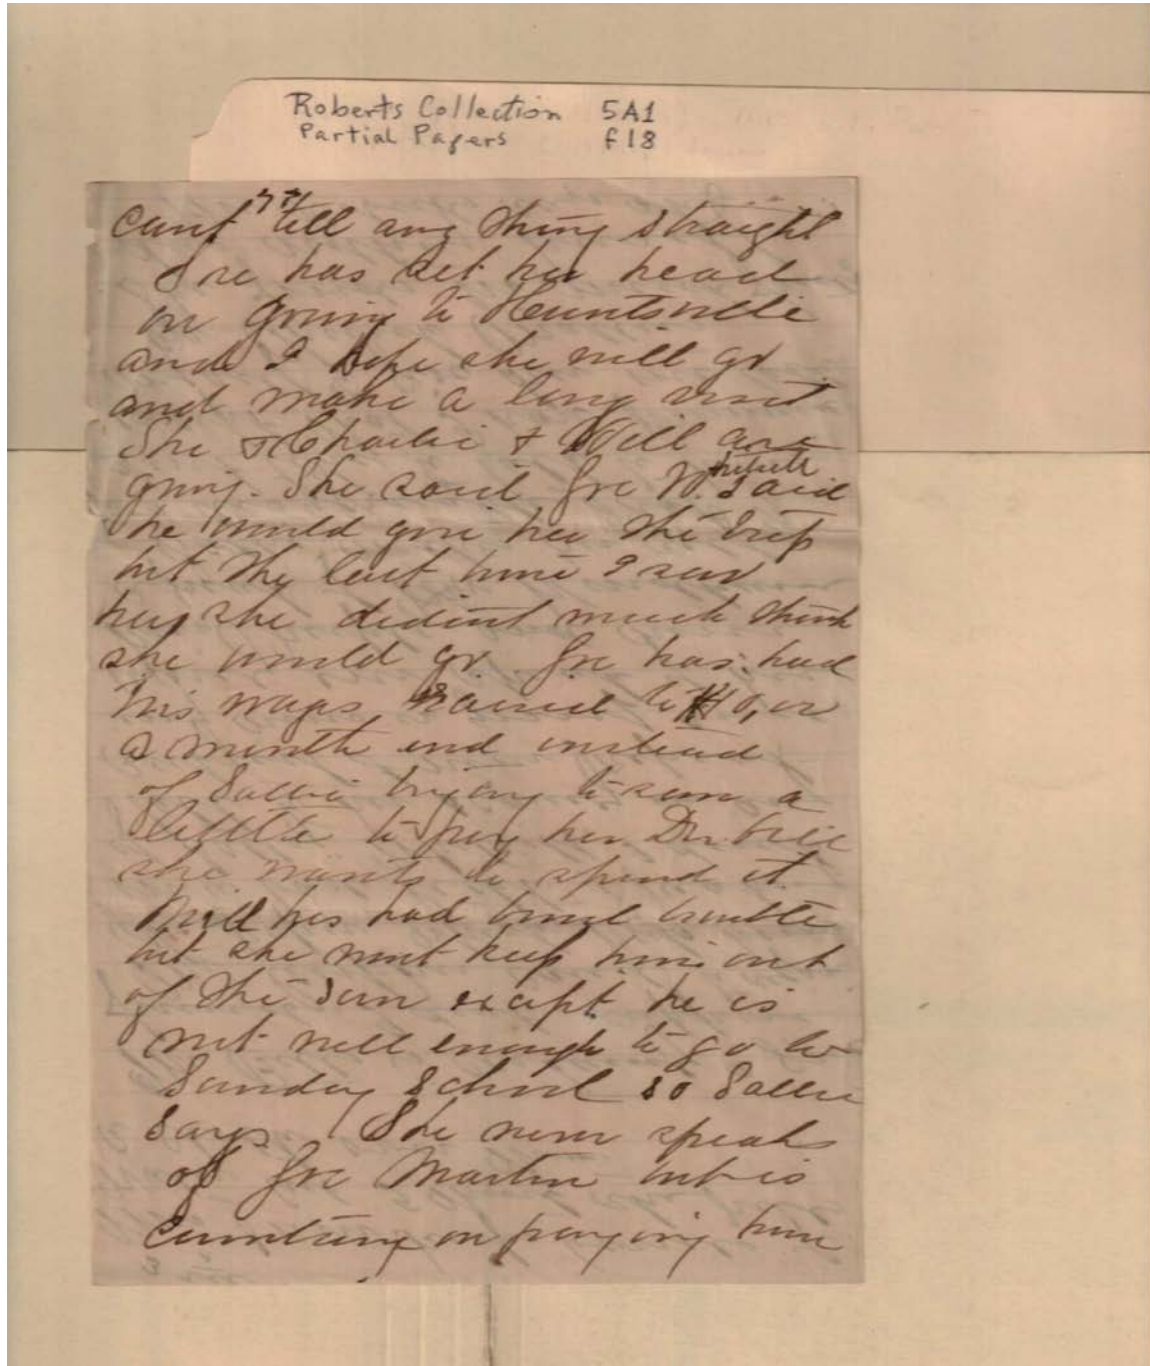 Roberts Collection 5A1
Partial Papers f18
cant tell any thing straight
She has set her head
on going to Huntsville
and I hope she will go
and make a long visit
She & Charlie & Will are
going. She said Joe W. said
he would give her the trip
but the last time I saw
her she didint much think
she would go. Joe has had
his wages raised to
a month and instead
of Sallie trying to save a
little to pay her Dr bill
she wants to spend it.
Will has had bowel trouble
but she must keep him out
of the sun except he is
not well enough to go to
Sunday School so Sallie
Says. She never speaks
of Joe Martin but is
Counting on paying him